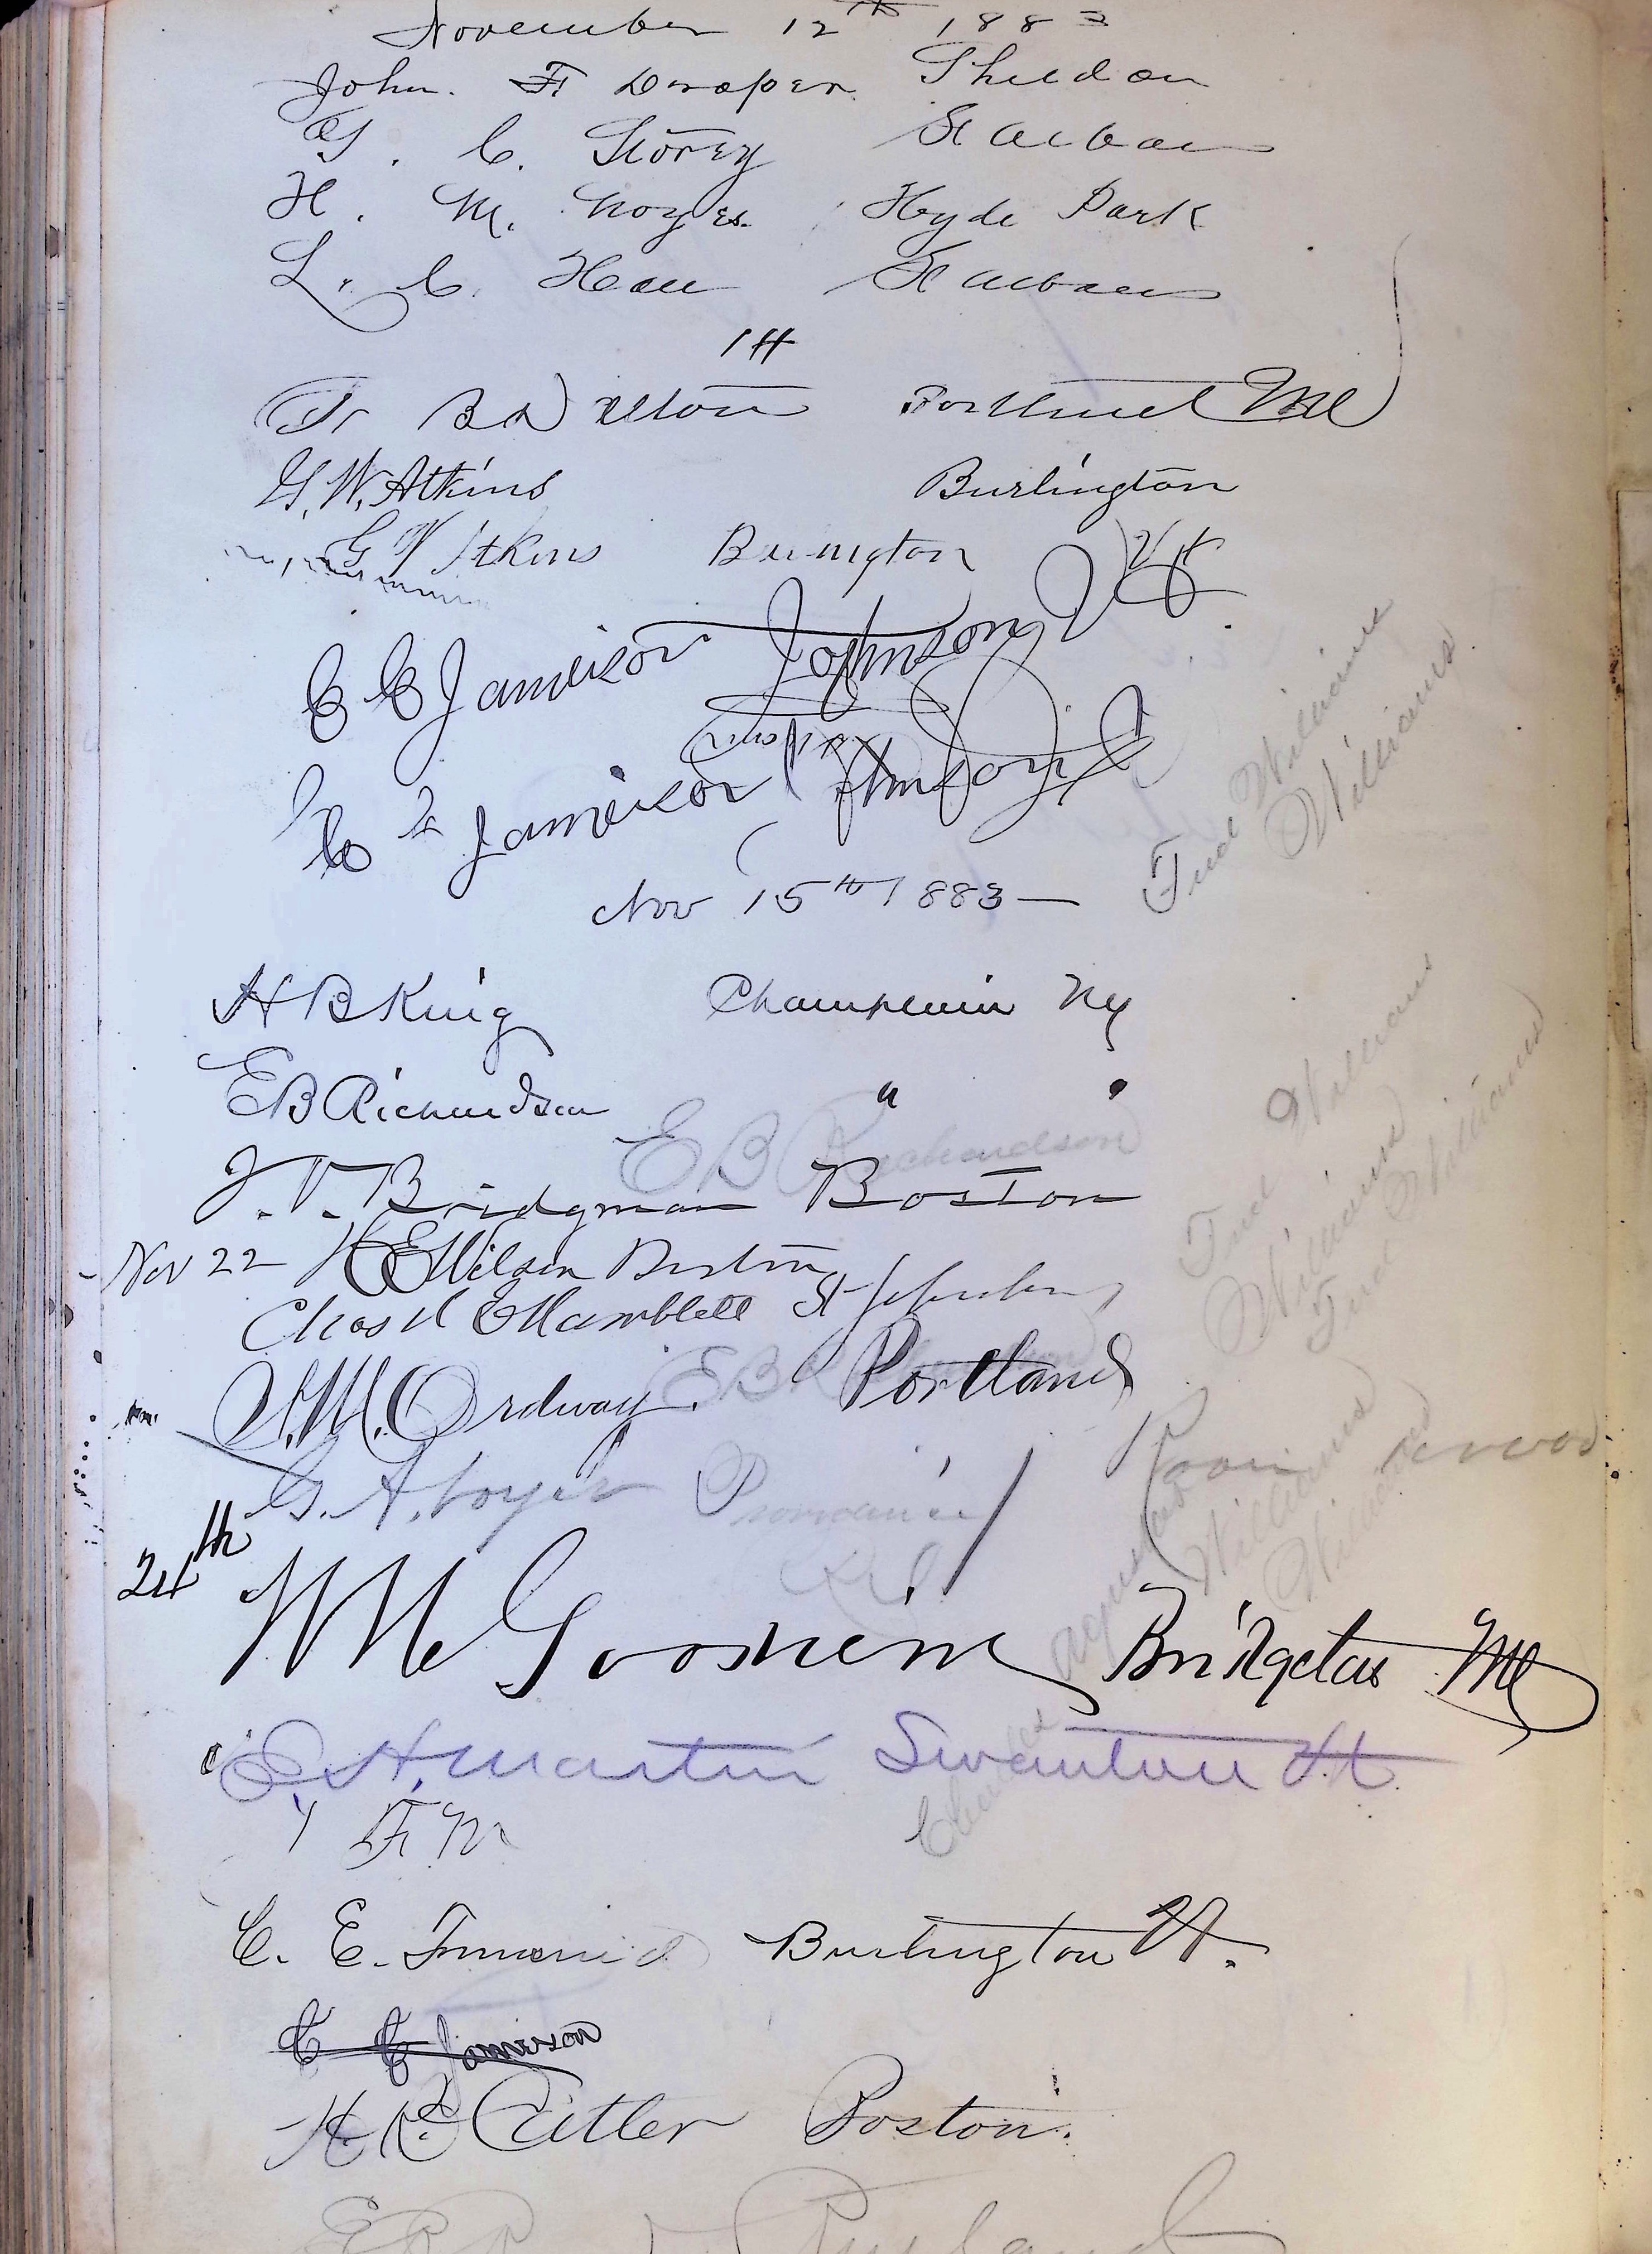 November 12th 1883
John. F Draper Sheldon
G. C. Storey St Albans
H. M. Noyes. Hyde Park
L. C. Hall St Albans
14
F B Wilton Portland Me
G. W. Atkins Burlington
G W Atkins Burlington Vt
C C Jameison Johnson Vt
C C Jameison Johnson Vt
Nov 15th 1883
H B King Champlain NY
E B Richardson " "
E B Richardson
J. V. Bridgman Boston
Nov 22 H E Wilson Boston
Chas H E Hamblett St Johnsbury
E B
S. M. Ordway. Portland
G. A. Providence
R I
24th
W M Goodwin Bridgeton Me
E. H. Martin Swanton Vt
F M
C. E. Burlington Vt.
C C Jameson
H. R. Cutler Boston.
E B Rutland
Fred Williams
Williams
Fred Williams
Williams
Fred Williams
Williams
Williams